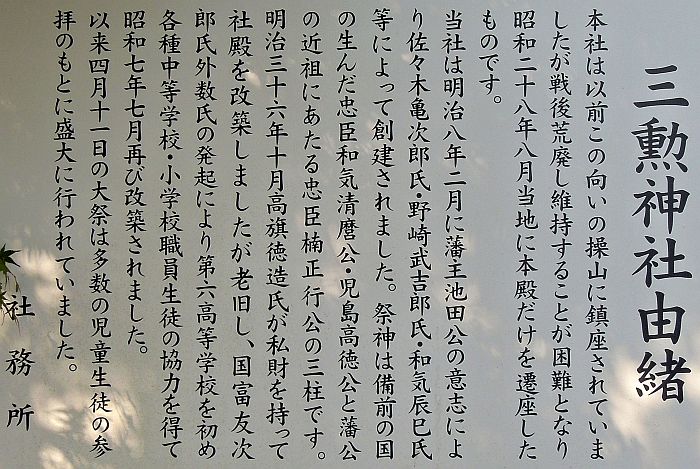 三勲神社由緒
本社は以前この向いの操山に鎮座されていま
したが戦後荒廃し維持することが困難となり
昭和二十八年八月当地に本殿だけを遷座した
ものです。
当社は明治八年二月に藩主池田公の意志によ
り佐々木亀次郎氏・野崎武吉郎氏・和気辰巳氏
等によって創建されました。祭神は備前の国
の生んだ忠臣和気清麿公・児島高徳公と藩公
の近祖にあたる忠臣楠正行公の三柱です。
明治三十六年十月高旗徳造氏が私財を持って
社殿を改築しましたが老旧し、国富友次
郎氏外数氏の発起により第六高等学校を初め
各種中等学校・小学校職員生徒の協力を得て
昭和七年七月再び改築されました。
以来四月十一日の大祭は多数の児童生徒の参
拝のもとに盛大に行われていました。
社務所